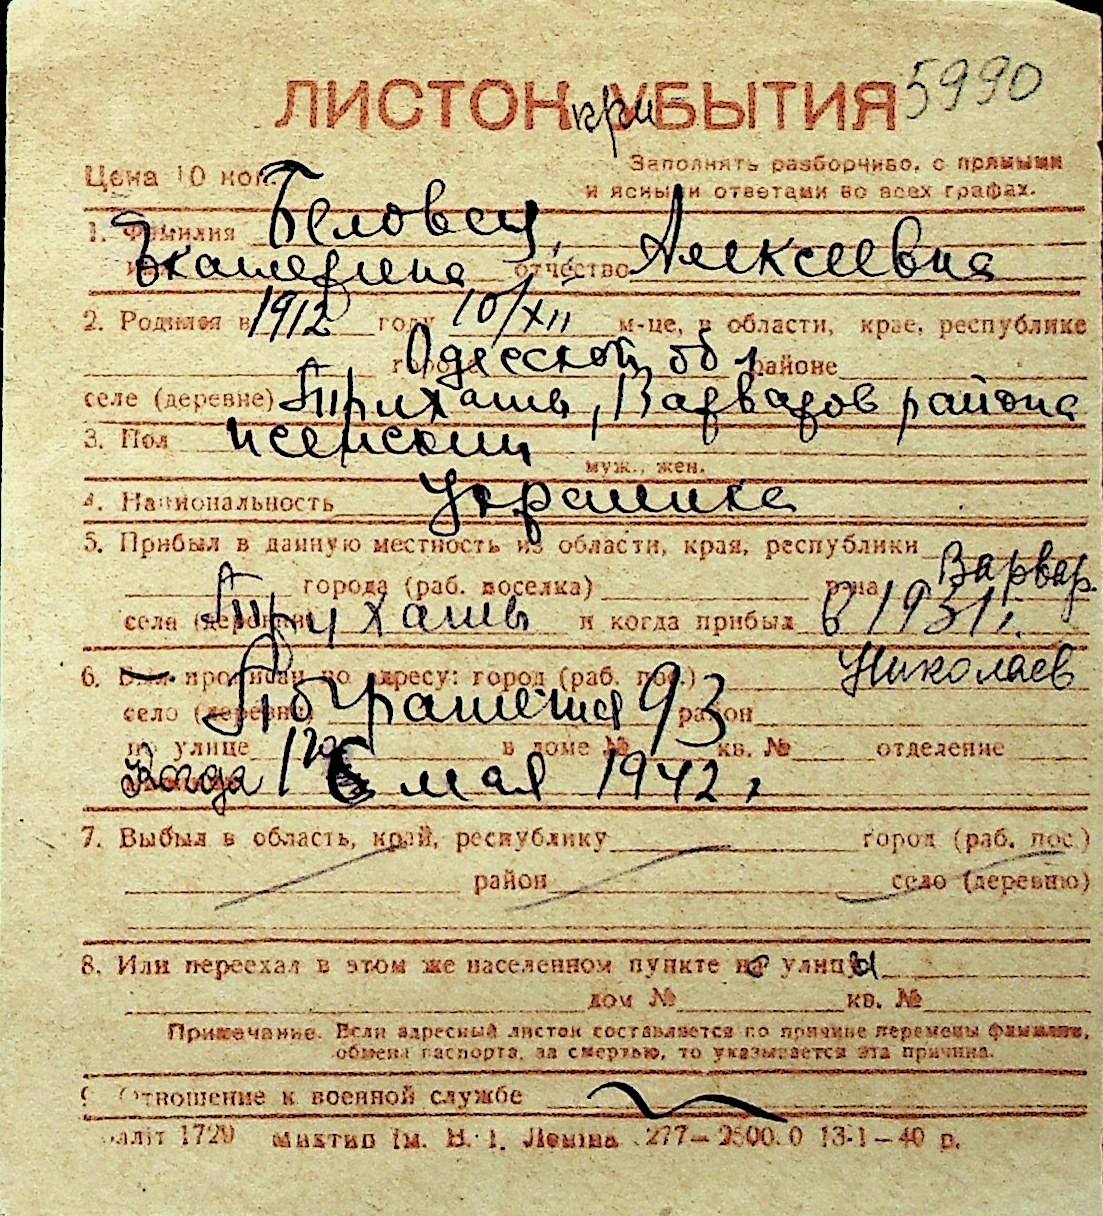 5990
ЛИСТОК УБЫТИЯ при
Цена 10 коп. Заполнять разборчиво, с прямыми
и ясными ответами во всех графах.
1. Фамилия Беловец,
имя Екатерина отчество Алексеевна
2. Родился в 1912 году 10/XII м-це, в области, крае, республике
городе Одесской обл. районе
селе (деревне) Трихаты, Варваров района
3. Пол женский
муж., жен.
4. Национальность Украинка
5. Прибыл в данную местность из области, края, республики
города (раб. поселка) р-на Варвар.
села (деревни) Трихаты и когда прибыл в 1931 г.
6. Был прописан по адресу: город (раб. пос.) Николаев
село (деревня) 93 район
по улице в доме № кв. № отделение
Когда 16 мая 1942 г.
7. Выбыл в область, край, республику город (раб. пос.)
район село (деревню)
8. Или переехал в этом же населенном пункте с улицы
дом № кв. №
Примечание. Если адресный листок составляется по причине перемены фамилии,
обмена паспорта, за смертью, то указывается эта причина.
9. Отношение к военной службе
лліт 1729 Миктип Ім. В. І. Леніна 277—2500.0 13-1—40 р.